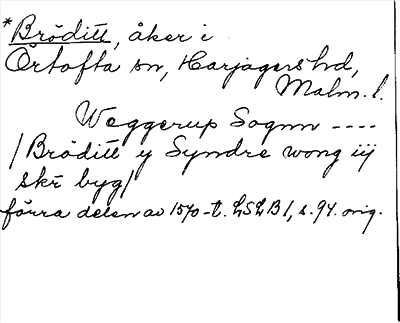 *Bröditt, åker i
Örtofta sn, Harjagers hd,
Malm. l.
Weggerup Sognn ----
/Bröditt y Syndre wong iij
skr̄ byg/
förra delen av 1570-t. LSLB 1, s. 94. orig.